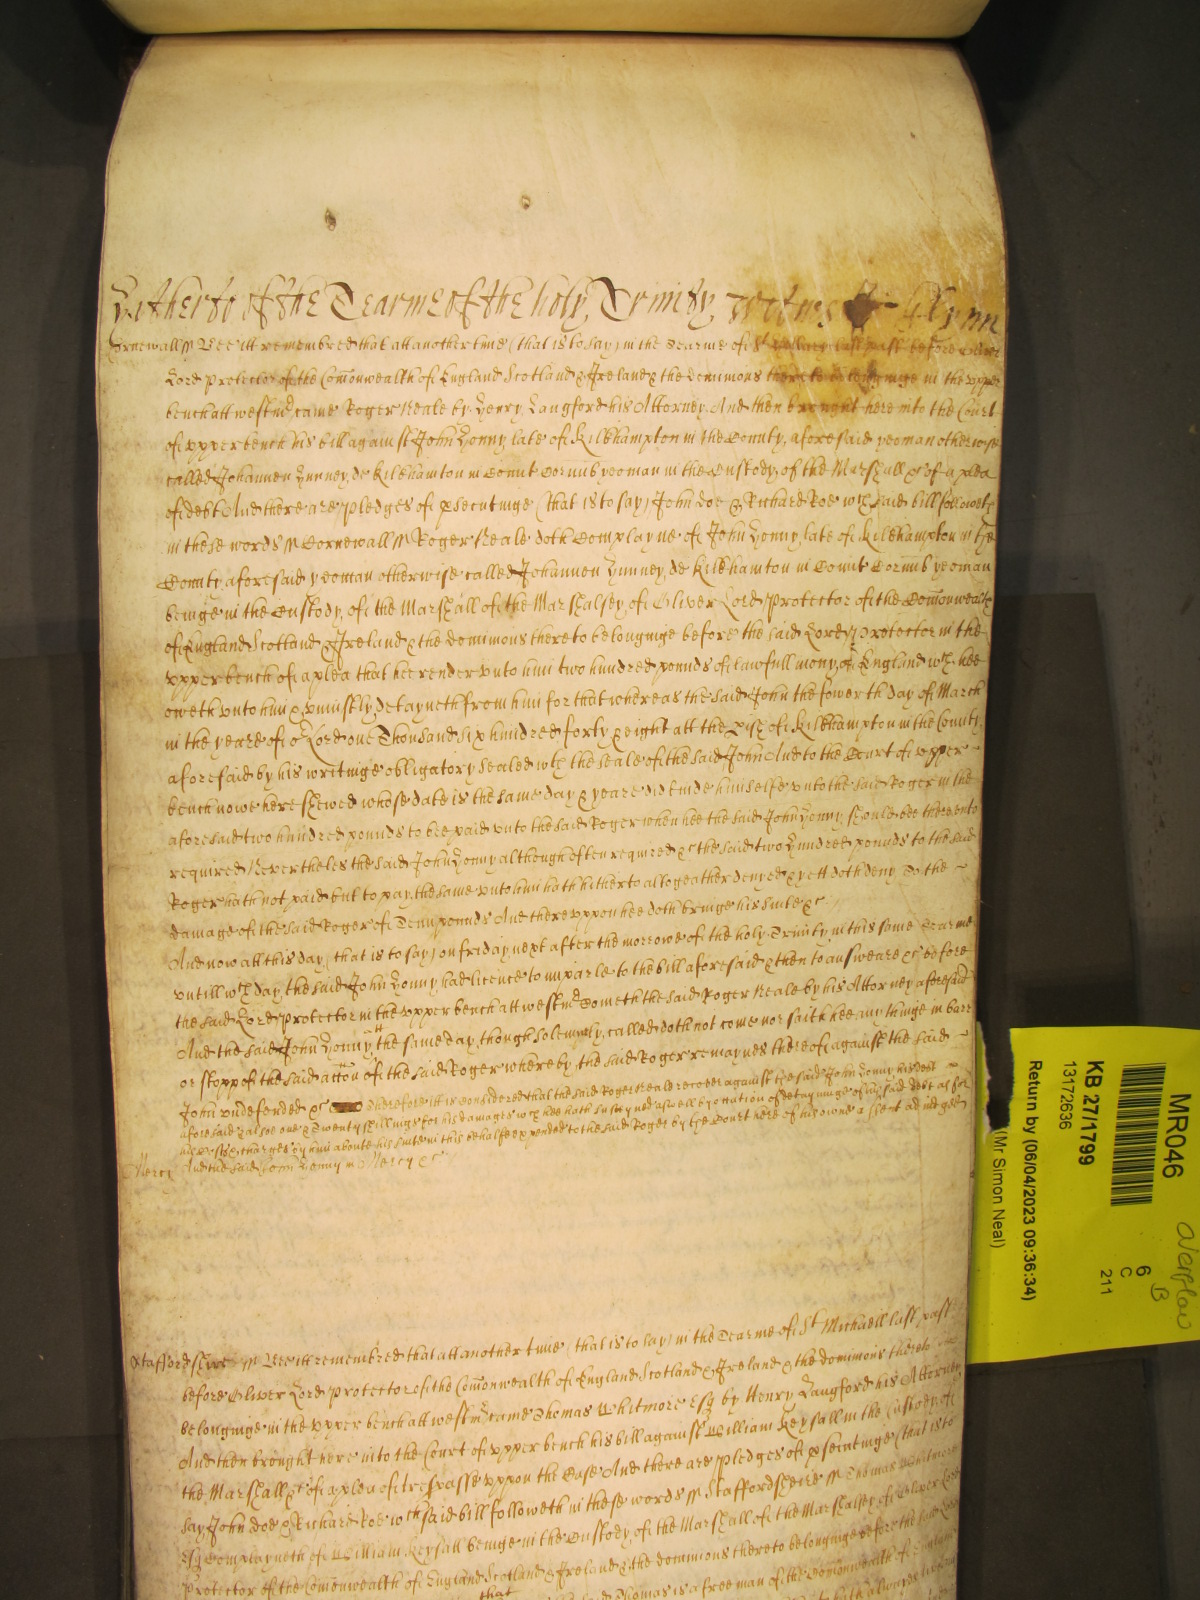 Hitherto of the Tearme of the holy Trinity Witnes Glynn
Cornewall ss Bee itt remembred that att another time (that is to say) in the Tearme of St Hillary last past before Oliver
Lord Protector of the Comonwealth of England Scotland & Ireland & the dominions thereto belonginge in the upper
bench att westmr came Roger Neale by Henry Langford his Attorney And then brought here into the Court
of upper bench his bill against John Honny late of Kilkhampton in the County aforesaid yeoman otherwise
called Johannem Hunney de Kilkhamton in Comit Cornub yeoman in the Custody of the Marshall &c of a plea
of debt And there are pledges of psecutinge (that is to say) John Doe & Richard Roe wch said bill followeth
in these words ss Cornewall ss Roger Neale doth Complayne of John Honny late of Kilkhampton in the
County aforesaid yeoman otherwise called Johannem Hunney de Kilkhamton in Comit Cornub yeoman
beinge in the Custody of the Marshall of the Marshalsey of Oliver Lord Protector of the Comonwealth
of England Scotland & Ireland & the dominions thereto belonginge before the said Lord Protector in the
upper bench of a plea that hee render unto him two hundred pounds of lawfull mony of England wch hee
oweth unto him & uniustly detayneth from him for that whereas the said John the fowerth day of March
in the yeare of or Lord one Thousand six hundred forty & eight att the Pish of Kilkhampton in the County
aforesaid by his writinge obligatory sealed wth the seale of the said John And to the Court of upper
bench nowe here shewed whose date is the same day & yeare did binde himselfe unto the said Roger in the
aforesaid two hundred pounds to bee paid unto the said Roger when hee the said John Honny should bee thereunto
required Neverthelesthe said John Honny although often required &c the said two Hundred pounds to the said
Roger hath not paid but to pay the same unto him hath hitherto altogeather denyed & yett doth deny To the
damage of the said Roger of Tenn pounds And thereuppon hee doth bringe his suite &c
And now att this day (that is to say) on friday next after the morrowe of the holy Trinity in this same Tearme
untill wch day the said John Honny had licence to imparle to the bill aforesaid & then to answeare &c before
the said Lord Protector in the upper bench att westmr Cometh the said Roger Neale by his Attorney aforesaid
And the said John Honny the same day though solemnly called doth not come nor saith hee any thinge in barr
or stopp of the said accon of the said Roger whereby the said Roger remaynes thereof against the said
John undefended &c Therefore itt is considered that the said Roger Neale recover against the said John Honny his debt
aforesaid & alsoe one & Twenty shillings for his damages wch hee hath susteyned aswell by occasion of detayninge of the said debt as for
his costs & charges by him aboute his suite in this behalfe expended to the said Roger by the Court here of his owne assent adiudged
Mercy And the said John Honny in Mercy &c
Staffordshire ss Bee itt remembred that att another time (that is to say) in the Tearme of St Michaell last past
before Oliver Lord Protector of the Comonwealth of England Scotland & Ireland & the dominions thereto
belonginge in the upper bench att westmr came Thomas Whitmore Esq by Henry Langford his Attorney
And then brought here into the Court of upper bench his bill against William Keysall in the Custody of
the Marshall &c of a plea of trespasse uppon the Case And there are pledges of psecutinge (that is to
say John Doe & Richard Roe wch said bill followeth in these words ss Staffordsheere ss Thomas Whitmore
Esq Complayneth of William Keysall beinge in the Custody of the Marshall of the Marshalsey of Oliver Lord
Protector of the Comonwealth of England Scotland & Ireland & the dominions thereto belonginge before the said Lord
that
said Thomas is a free man of the Comonwealth of England
MR046
KB 27/1799
13172636
Return by (06/04/2023 09:36:34)
(Mr Simon Neal)
6
C
211
B
overflow